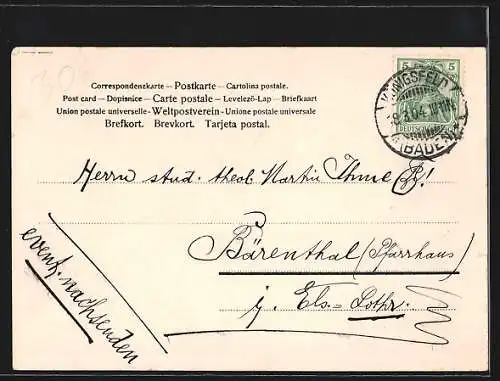 Correspondenzkarte — Postkarte — Cartolina postale.
Post card — Dopisnice — Carte postale — Levelező-Lap — Briefkaart
Union postale universelle — Weltpostverein — Unione postale universale
Brefkort. Brevkort. Tarjeta postal.
5 5
KÖNIGSFELD
8.3.04.
(BADEN)
DEUTSCHES
Herrn stud. theol. Martin Thme
Bärenthal (Pfarrhaus)
i. Els.-Lothr.
event. nachsenden